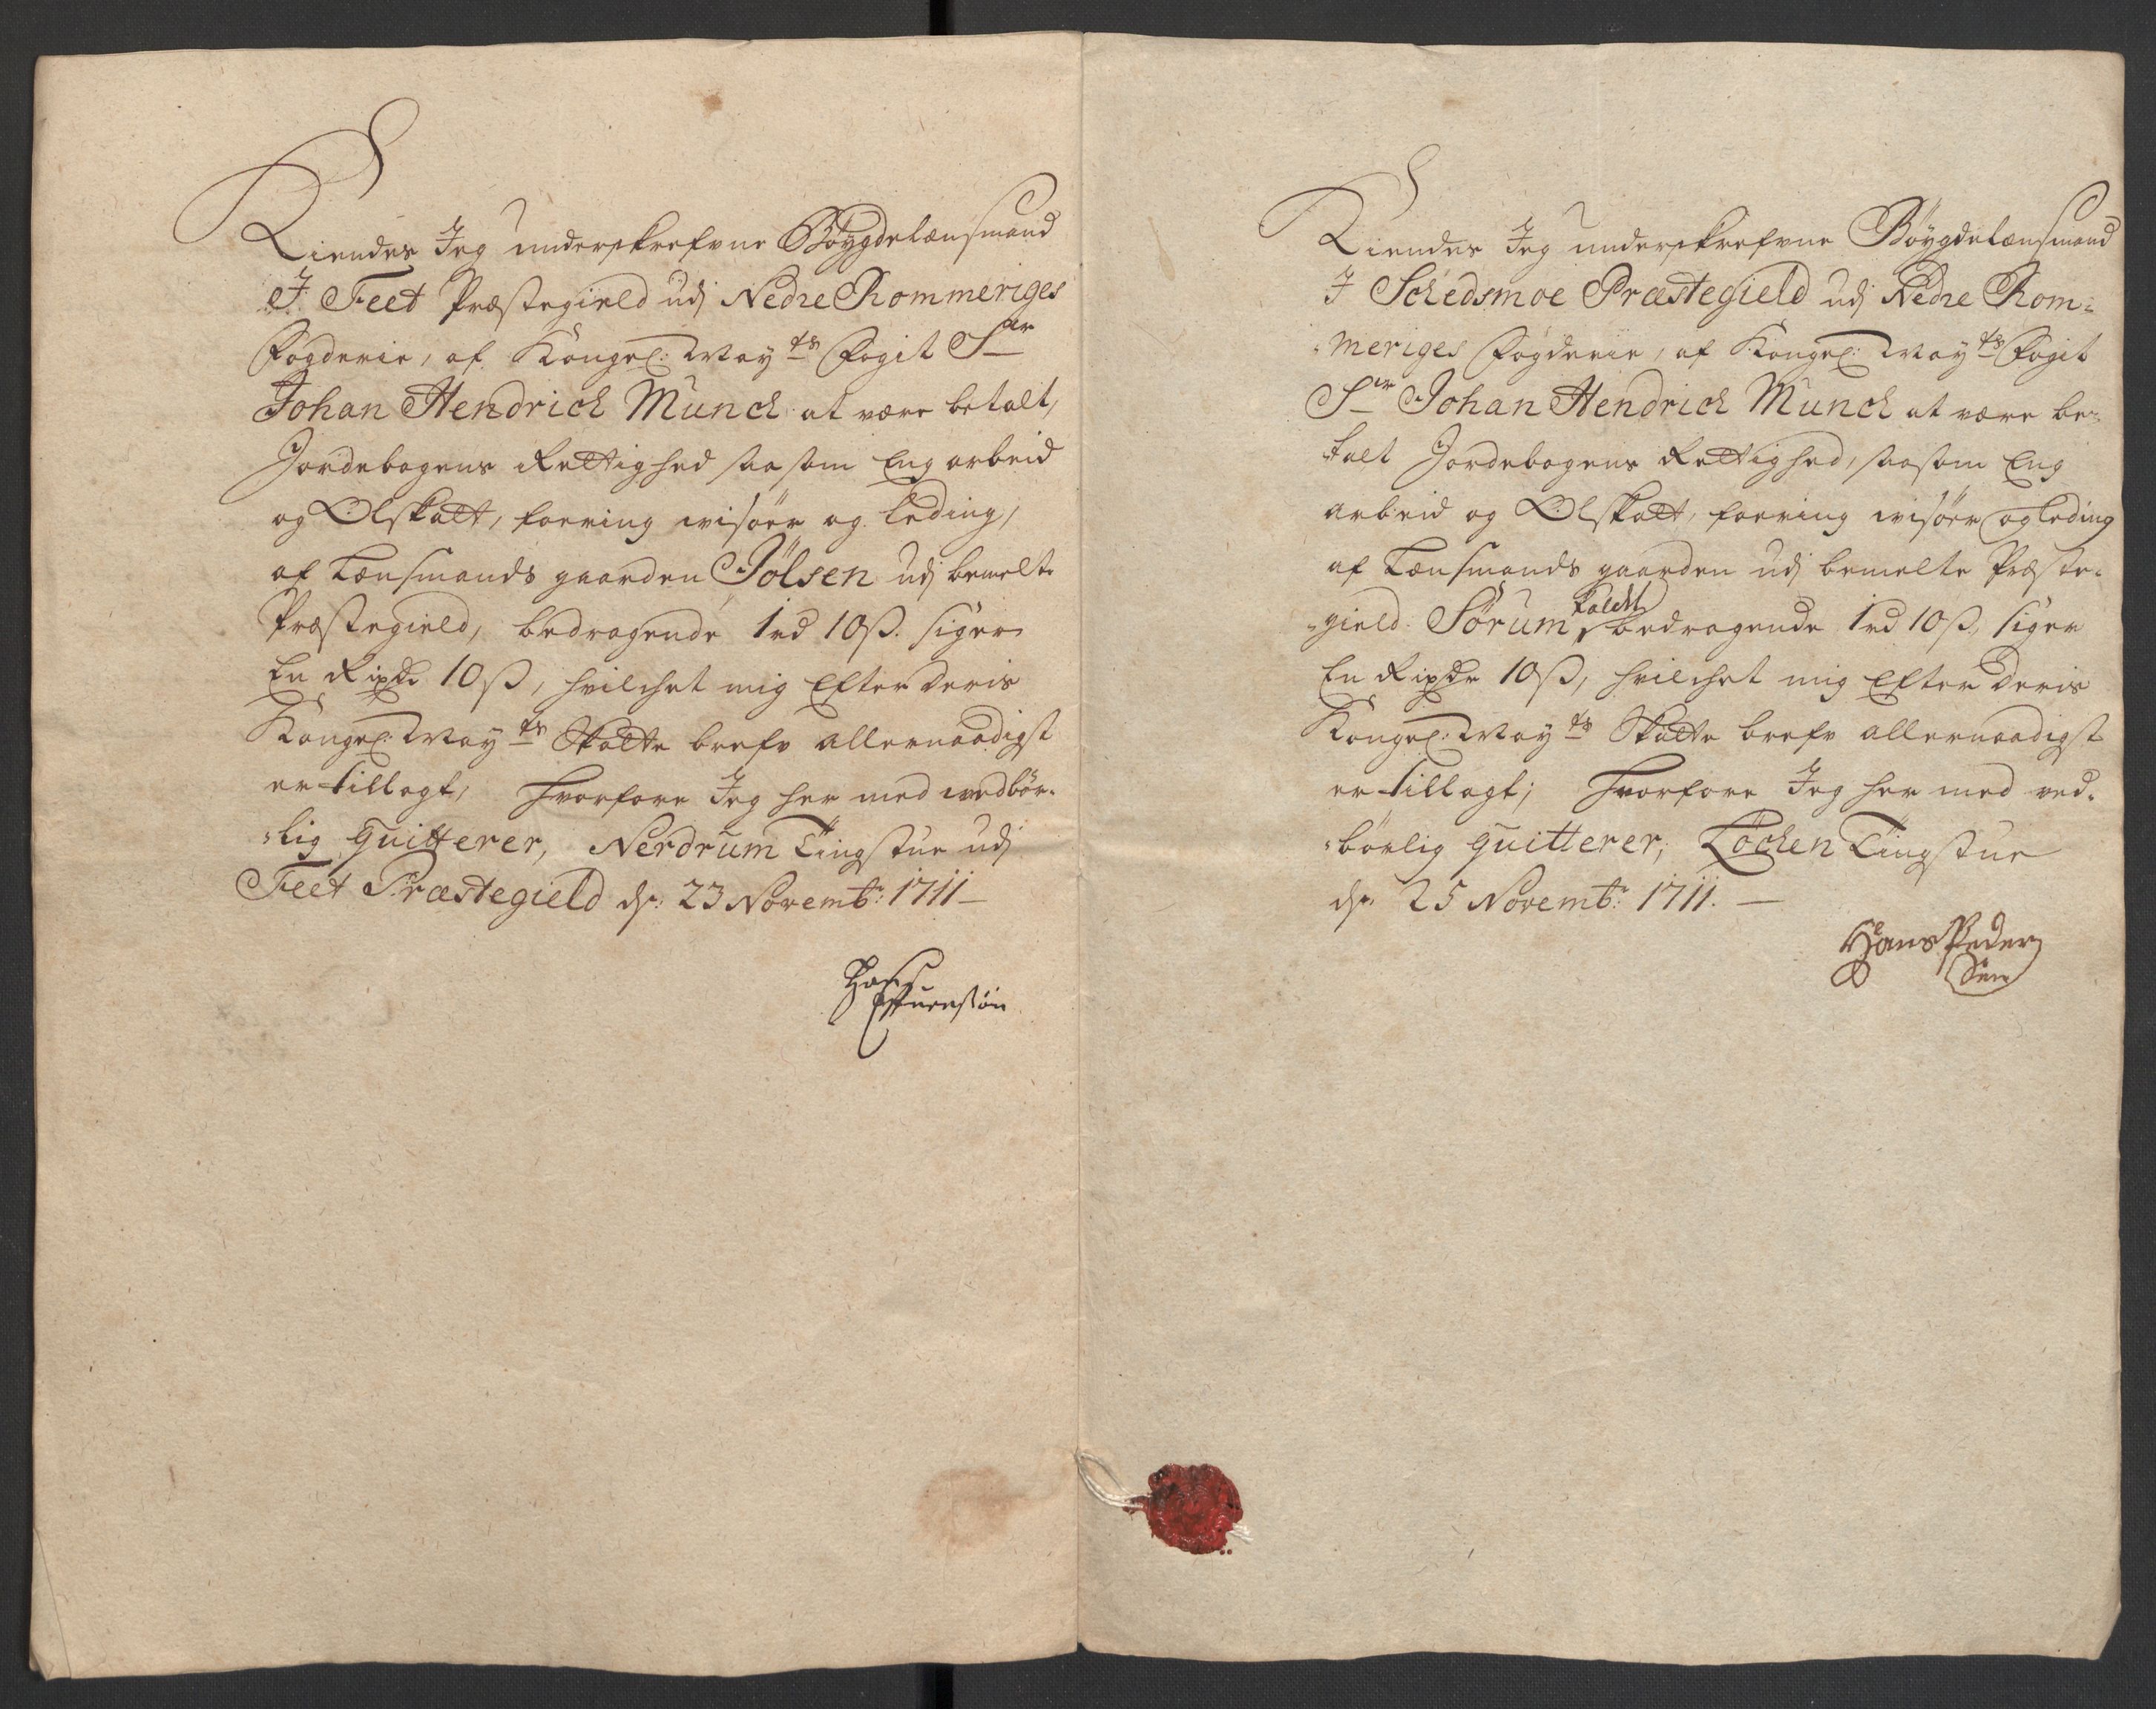 Kiendes Jeg underskrefvne Böygdelænsmand
J Feet Præstegield udj Nedre Rommeriges
Fogderie, af Kongel: May.ts Fogit Sr
Johan Hendrich Munch at være betalt,
Jordebogens Rettighed saasom Eng arbeid
og Olskatt, foering wisöer og Leding,
af Lænsmands gaarden Jölsen udj bemelte
Præstegield, bedragende 1rd 10ß. siger
En Rixdr 10ß, hvilchet mig Efter Deris
Kongel: May.ts Skatte brefv allernaadigst
er tillagt, hvorfore Jeg her med wedbör-
-lig quitterer, Nerdrum Tingstue udj
Feet Præstegield dn: 23 Novembr: 1711 –
Kiendes Jeg underskrefvne Böygdelænsmand
J Schedsmoe Præstegield udj Nedre Rom-
-meriges Fogderie, af Kongel: May.ts Fogit
Sr Johan Hendrich Munch at være be-
talt Jordebogens Rettighed, saasom Eng
arbeid og Olskatt, foering wisöer og Leding
af Lænsmands gaarden udj bemelte Præste-
-gield Sörum kaldet bedragende 1rd 10ß, siger
En Rixdr 10ß, hvilchet mig Efter Deris
Kongel: May.ts Skatte brefv allernaadigst
er tillagt; hvorfore Jeg her med ved-
-börlig quitterer; Löchen Tingstue
dn 25 Novembr: 1711. –
Hans Peder
Sen